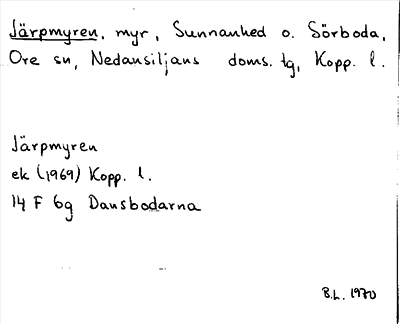 Järpmyren, myr, Sunnanhed o. Sörboda,
Ore sn, Nedansiljans doms. tg, Kopp. l.
Järpmyren
ek (1969) Kopp. l.
14 F 6g Dansbodarna
B.L. 1970